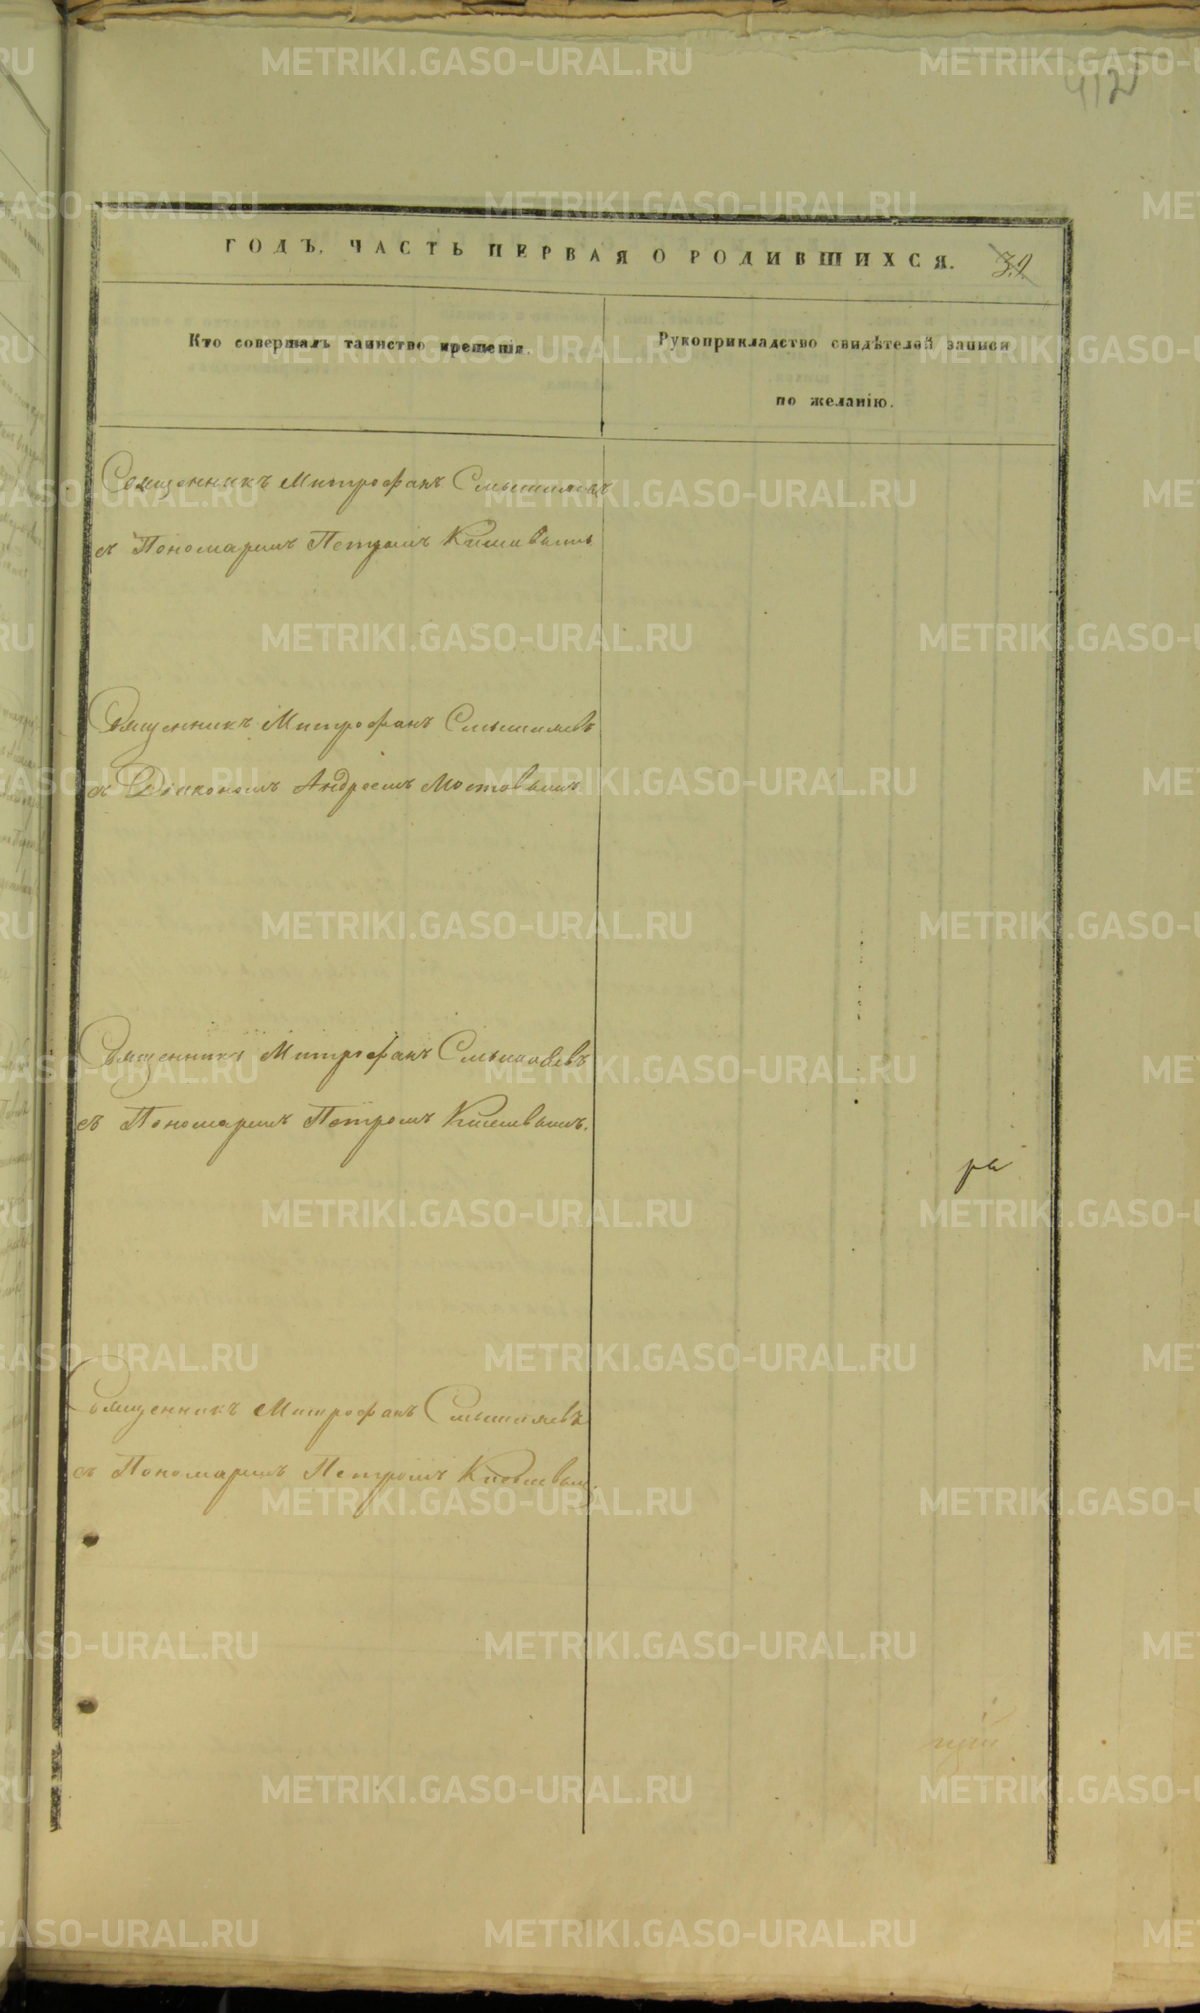 412
ГОДЪ. ЧАСТЬ ПЕРВАЯ О РОДИВШИХСЯ. 39
Кто совершалъ таинство крещенія.
Рукоприкладство свидѣтелей записи
по желанію.
Священникъ Митрофанъ Смышляевъ
съ Пономаремъ Петромъ
Священникъ Митрофанъ Смышляевъ
съ Діакономъ Андреемъ Мостовымъ
Священникъ Митрофанъ Смышляевъ
съ Пономаремъ Петромъ
ра
Священникъ Митрофанъ Смышляевъ
съ Пономаремъ Петромъ
METRIKI.GASO-URAL.RU